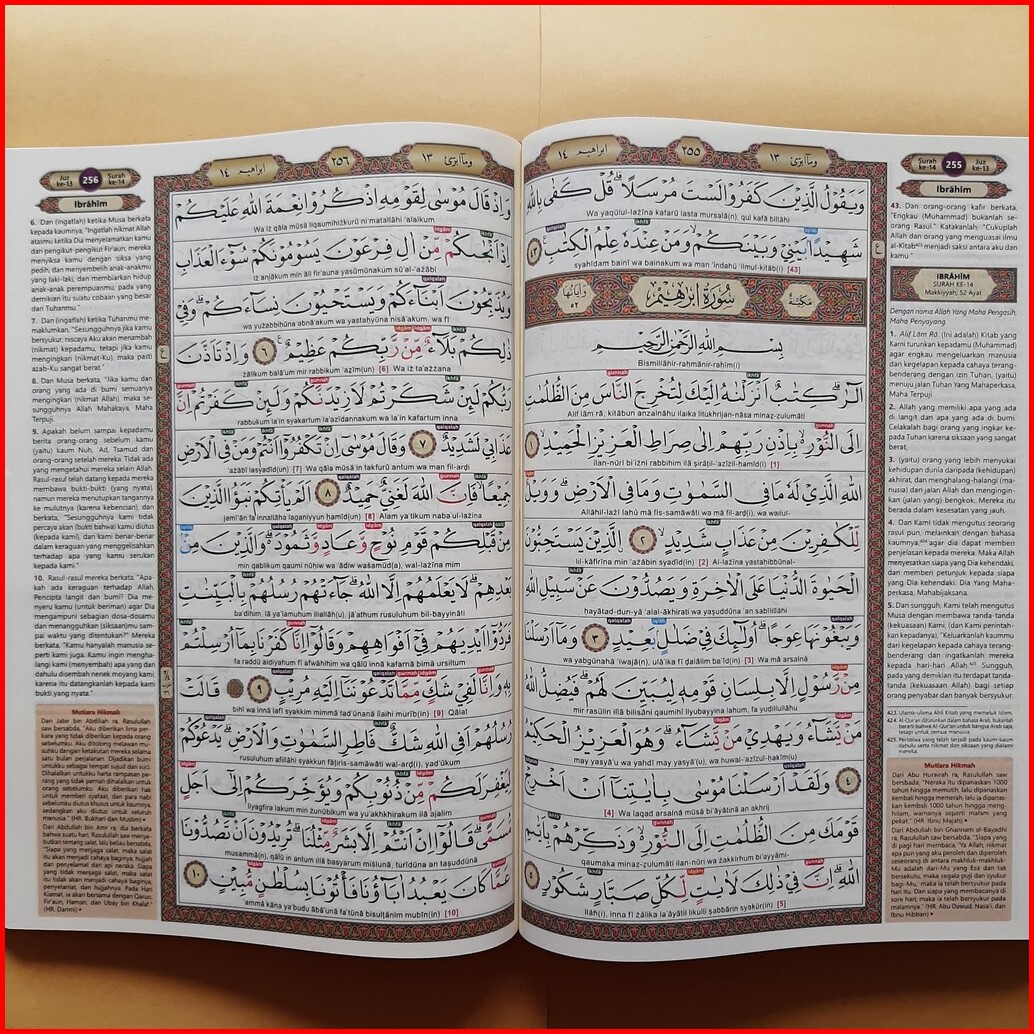 وما ابرئ ١٣
٢٥٥
ابراهيم ١٤
وَيَقُوْلُ الَّذِيْنَ كَفَرُوْا لَسْتَ مُرْسَلًا ۗ قُلْ كَفٰى بِاللّٰهِ
Wa yaqūlul-lażīna kafarū lasta mursalā(n), qul kafā billāhi
شَهِيْدًاۢ بَيْنِيْ وَبَيْنَكُمْۙ وَمَنْ عِنْدَهٗ عِلْمُ الْكِتٰبِ ۝٤٣
syahīdam bainī wa bainakum wa man ‘indahū ‘ilmul-kitāb(i) [43]
مَكِّيَّة
سُوْرَةُ اِبْرٰهِيْمَ
وَاٰيَاتُهَا ٥٢
بِسْمِ اللّٰهِ الرَّحْمٰنِ الرَّحِيْمِ
Bismillāhir-raḥmānir-raḥīm(i)
الۤرٰ ۗ كِتٰبٌ اَنْزَلْنٰهُ اِلَيْكَ لِتُخْرِجَ النَّاسَ مِنَ الظُّلُمٰتِ
Alif lām rā, kitābun anzalnāhu ilaika litukhrijan-nāsa minaz-zulumāti
اِلَى النُّوْرِ ەۙ بِاِذْنِ رَبِّهِمْ اِلٰى صِرَاطِ الْعَزِيْزِ الْحَمِيْدِۙ ۝١
ilan-nūri bi'iżni rabbihim ilā ṣirāṭil-‘azīzil-ḥamīd(i) [1]
اللّٰهِ الَّذِيْ لَهٗ مَا فِى السَّمٰوٰتِ وَمَا فِى الْاَرْضِۗ وَوَيْلٌ
Allāhil-lażī lahū mā fis-samāwāti wa mā fil-arḍ(i), wa wailul-
لِّلْكٰفِرِيْنَ مِنْ عَذَابٍ شَدِيْدٍۙ ۝٢ ۨالَّذِيْنَ يَسْتَحِبُّوْنَ
lil-kāfirīna min ‘ażābin syadīd(in) [2] Al-lażīna yastaḥibbūnal-
الْحَيٰوةَ الدُّنْيَا عَلَى الْاٰخِرَةِ وَيَصُدُّوْنَ عَنْ سَبِيْلِ اللّٰهِ
ḥayātad-dun-yā ‘alal-ākhirati wa yaṣuddūna ‘an sabīlillāhi
وَيَبْغُوْنَهَا عِوَجًاۗ اُولٰۤىِٕكَ فِيْ ضَلٰلٍۢ بَعِيْدٍ ۝٣ وَمَآ اَرْسَلْنَا
wa yabgūnahā ‘iwajā(n), ulā'ika fī ḍalālim ba‘īd(in) [3] Wa mā arsalnā
مِنْ رَّسُوْلٍ اِلَّا بِلِسَانِ قَوْمِهٖ لِيُبَيِّنَ لَهُمْ ۗ فَيُضِلُّ اللّٰهُ
mir rasūlin illā bilisāni qaumihī liyubayyina lahum, fa yuḍillullāhu
مَنْ يَّشَاۤءُ وَيَهْدِيْ مَنْ يَّشَاۤءُ ۗ وَهُوَ الْعَزِيْزُ الْحَكِيْمُ
may yasyā'u wa yahdī may yasyā'(u), wa huwal-‘azīzul-ḥakīm(u)
۝٤ وَلَقَدْ اَرْسَلْنَا مُوْسٰى بِاٰيٰتِنَآ اَنْ اَخْرِجْ
[4] Wa laqad arsalnā mūsā bi'āyātinā an akhrij
قَوْمَكَ مِنَ الظُّلُمٰتِ اِلَى النُّوْرِ ەۙ وَذَكِّرْهُمْ بِاَيّٰىمِ
qaumaka minaz-zulumāti ilan-nūri wa żakkirhum bi'ayyāmi-
اللّٰهِ ۗ اِنَّ فِيْ ذٰلِكَ لَاٰيٰتٍ لِّكُلِّ صَبَّارٍ شَكُوْرٍ
llāh(i), inna fī żālika la'āyātil likulli ṣabbārin syakūr(in) [5]
Surah ke-14
255
Juz ke-13
Ibrāhīm
43. Dan orang-orang kafir berkata,
"Engkau (Muhammad) bukanlah se-
orang Rasul." Katakanlah, "Cukuplah
Allah dan orang yang menguasai ilmu
al-Kitab⁴²³ menjadi saksi antara aku dan
kamu."
IBRĀHĪM
SURAH KE-14
Makkiyyah; 52 Ayat
Dengan nama Allah Yang Maha Pengasih,
Maha Penyayang.
1. Alif Lām Rā. (Ini adalah) Kitab yang
Kami turunkan kepadamu (Muhammad)
agar engkau mengeluarkan manusia
dari kegelapan kepada cahaya terang-
benderang dengan izin Tuhan, (yaitu)
menuju jalan Tuhan Yang Mahaperkasa,
Maha Terpuji.
2. Allah yang memiliki apa yang ada
di langit dan apa yang ada di bumi.
Celakalah bagi orang yang ingkar ke-
pada Tuhan karena siksaan yang sangat
berat,
3. (yaitu) orang yang lebih menyukai
kehidupan dunia daripada (kehidupan)
akhirat, dan menghalang-halangi (ma-
nusia) dari jalan Allah dan mengingin-
kan (jalan yang) bengkok. Mereka itu
berada dalam kesesatan yang jauh.
4. Dan Kami tidak mengutus seorang
rasul pun, melainkan dengan bahasa
kaumnya,⁴²⁴ agar dia dapat memberi
penjelasan kepada mereka. Maka Allah
menyesatkan siapa yang Dia kehendaki,
dan memberi petunjuk kepada siapa
yang Dia kehendaki. Dia Yang Maha-
perkasa, Mahabijaksana.
5. Dan sungguh, Kami telah mengutus
Musa dengan membawa tanda-tanda
(kekuasaan) Kami, (dan Kami perintah-
kan kepadanya), "Keluarkanlah kaummu
dari kegelapan kepada cahaya terang-
benderang dan ingatkanlah mereka
kepada hari-hari Allah."⁴²⁵ Sungguh,
pada yang demikian itu terdapat tanda-
tanda (kekuasaan Allah) bagi setiap
orang penyabar dan banyak bersyukur.
423. Ulama-ulama Ahli Kitab yang memeluk Islam.
424. Al-Qur'an diturunkan dalam bahasa Arab, bukanlah
berarti bahwa Al-Qur'an untuk bangsa Arab saja,
tetapi untuk semua manusia.
425. Peristiwa yang telah terjadi pada kaum-kaum
dahulu serta nikmat dan siksaan yang dialami
mereka.
Mutiara Hikmah
Dari Abu Hurairah ra, Rasulullah saw
bersabda, "Neraka itu dikobarkan 1000
tahun hingga memutih, lalu dipanaskan
kembali hingga memerah, lalu ia dipanas-
kan kembali 1000 tahun hingga meng-
hitam, warnanya seperti malam yang
pekat." (HR. Ibnu Majah)
Dari Abdullah bin Ghannam al-Bayadhi
ra, Rasulullah saw bersabda, "Siapa yang
di pagi hari membaca, 'Ya Allah, nikmat
apa pun yang aku peroleh dan diperoleh
seseorang di antara makhluk-makhluk-
Mu adalah dari-Mu yang Esa dan tak
bersekutu, maka segala puji dan syukur
bagi-Mu,' maka ia telah bersyukur pada
hari itu. Dan siapa yang membacanya di
sore hari, maka ia telah bersyukur pada
malamnya." (HR. Abu Dawud, Nasa'i, dan
Ibnu Hibban)
وما ابرئ ١٣
٢٥٦
ابراهيم ١٤
وَاِذْ قَالَ مُوْسٰى لِقَوْمِهِ اذْكُرُوْا نِعْمَةَ اللّٰهِ عَلَيْكُمْ
Wa iż qāla mūsā liqaumihiżkurū ni‘matallāhi ‘alaikum
اِذْ اَنْجٰىكُمْ مِّنْ اٰلِ فِرْعَوْنَ يَسُوْمُوْنَكُمْ سُوْۤءَ الْعَذَابِ
iż anjākum min āli fir‘auna yasūmūnakum sū'al-‘ażābi
وَيُذَبِّحُوْنَ اَبْنَاۤءَكُمْ وَيَسْتَحْيُوْنَ نِسَاۤءَكُمْ ۗ وَفِيْ
wa yużabbiḥūna abnā'akum wa yastaḥyūna nisā'akum, wa fī
ذٰلِكُمْ بَلَاۤءٌ مِّنْ رَّبِّكُمْ عَظِيْمٌ ۝٦ وَاِذْ تَاَذَّنَ
żālikum balā'um mir rabbikum ‘aẓīm(un) [6] Wa iż ta'ażżana
رَبُّكُمْ لَىِٕنْ شَكَرْتُمْ لَاَزِيْدَنَّكُمْ وَلَىِٕنْ كَفَرْتُمْ اِنَّ
rabbukum la'in syakartum la'azīdannakum wa la'in kafartum inna
عَذَابِيْ لَشَدِيْدٌ ۝٧ وَقَالَ مُوْسٰٓى اِنْ تَكْفُرُوْٓا اَنْتُمْ وَمَنْ فِى الْاَرْضِ
‘ażābī lasyadīd(un) [7] Wa qāla mūsā in takfurū antum wa man fil-arḍi
جَمِيْعًا ۙ فَاِنَّ اللّٰهَ لَغَنِيٌّ حَمِيْدٌ ۝٨ اَلَمْ يَأْتِكُمْ نَبَؤُا الَّذِيْنَ
jamī‘an fa'innallāha laganiyyun ḥamīd(un) [8] Alam ya'tikum naba'ul-lażīna
مِنْ قَبْلِكُمْ قَوْمِ نُوْحٍ وَّعَادٍ وَّثَمُوْدَ ۗ وَالَّذِيْنَ مِنْۢ
min qablikum qaumi nūḥiw wa ‘ādiw waṡamūd(a), wal-lażīna mim
بَعْدِهِمْ ۗ لَا يَعْلَمُهُمْ اِلَّا اللّٰهُ ۗ جَاۤءَتْهُمْ رُسُلُهُمْ بِالْبَيِّنٰتِ
ba‘dihim, lā ya‘lamuhum illallāh(u), jā'athum rusuluhum bil-bayyināti
فَرَدُّوْٓا اَيْدِيَهُمْ فِيْٓ اَفْوَاهِهِمْ وَقَالُوْٓا اِنَّا كَفَرْنَا بِمَآ اُرْسِلْتُمْ
fa raddū aidiyahum fī afwāhihim wa qālū innā kafarnā bimā ursiltum
بِهٖ وَاِنَّا لَفِيْ شَكٍّ مِّمَّا تَدْعُوْنَنَآ اِلَيْهِ مُرِيْبٍ ۝٩ قَالَتْ
bihī wa innā lafī syakkim mimmā tad‘ūnanā ilaihi murīb(in) [9] Qālat
رُسُلُهُمْ اَفِى اللّٰهِ شَكٌّ فَاطِرِ السَّمٰوٰتِ وَالْاَرْضِۗ يَدْعُوْكُمْ
rusuluhum afillāhi syakkun fāṭiris-samāwāti wal-arḍ(i), yad‘ūkum
لِيَغْفِرَ لَكُمْ مِّنْ ذُنُوْبِكُمْ وَيُؤَخِّرَكُمْ اِلٰٓى اَجَلٍ
liyagfira lakum min żunūbikum wa yu'akhkhirakum ilā ajalim
مُّسَمًّىۗ قَالُوْٓا اِنْ اَنْتُمْ اِلَّا بَشَرٌ مِّثْلُنَا ۗ تُرِيْدُوْنَ اَنْ تَصُدُّوْنَا
musammā(n), qālū in antum illā basyarum miṡlunā, turīdūna an taṣuddūnā
عَمَّا كَانَ يَعْبُدُ اٰبَاۤؤُنَا فَأْتُوْنَا بِسُلْطٰنٍ مُّبِيْنٍ ۝١٠
‘ammā kāna ya‘budu ābā'unā fa'tūnā bisulṭānim mubīn(in) [10]
Juz ke-13
256
Surah ke-14
Ibrāhīm
6. Dan (ingatlah) ketika Musa berkata
kepada kaumnya, "Ingatlah nikmat Allah
atasmu ketika Dia menyelamatkan kamu
dari pengikut-pengikut Fir'aun; mereka
menyiksa kamu dengan siksa yang
pedih, dan menyembelih anak-anakmu
yang laki-laki, dan membiarkan hidup
anak-anak perempuanmu; pada yang
demikian itu suatu cobaan yang besar
dari Tuhanmu."
7. Dan (ingatlah) ketika Tuhanmu me-
maklumkan, "Sesungguhnya jika kamu
bersyukur, niscaya Aku akan menambah
(nikmat) kepadamu, tetapi jika kamu
mengingkari (nikmat-Ku), maka pasti
azab-Ku sangat berat."
8. Dan Musa berkata, "Jika kamu dan
orang yang ada di bumi semuanya
mengingkari (nikmat Allah), maka se-
sungguhnya Allah Mahakaya, Maha
Terpuji.
9. Apakah belum sampai kepadamu
berita orang-orang sebelum kamu
(yaitu) kaum Nuh, 'Ad, Tsamud dan
orang-orang setelah mereka. Tidak ada
yang mengetahui mereka selain Allah.
Rasul-rasul telah datang kepada mereka
membawa bukti-bukti (yang nyata),
namun mereka menutupkan tangannya
ke mulutnya (karena kebencian), dan
berkata, "Sesungguhnya kami tidak
percaya akan (bukti bahwa) kamu diutus
(kepada kami), dan kami benar-benar
dalam keraguan yang menggelisahkan
terhadap apa yang kamu serukan
kepada kami."
10. Rasul-rasul mereka berkata, "Apa-
kah ada keraguan terhadap Allah
Pencipta langit dan bumi? Dia me-
nyeru kamu (untuk beriman) agar Dia
mengampuni sebagian dosa-dosamu
dan menangguhkan (siksaan)mu sam-
pai waktu yang ditentukan?" Mereka
berkata, "Kamu hanyalah manusia se-
perti kami juga. Kamu ingin mengha-
langi kami (menyembah) apa yang dari
dahulu disembah nenek moyang kami,
karena itu datangkanlah kepada kami
bukti yang nyata."
Mutiara Hikmah
Dari Jabir bin Abdillah ra, Rasulullah
saw bersabda, "Aku diberikan lima per-
kara yang tidak diberikan kepada orang
sebelumku. Aku ditolong melawan mu-
suhku dengan ketakutan mereka selama
satu bulan perjalanan. Dijadikan bumi
untukku sebagai tempat sujud dan suci.
Dihalalkan untukku harta rampasan pe-
rang yang tidak pernah dihalalkan untuk
orang sebelumku. Aku diberikan hak
untuk memberi syafaat, dan para nabi
sebelumku diutus khusus untuk kaumnya,
sedangkan aku diutus untuk seluruh
manusia." (HR. Bukhari dan Muslim)
Dari Abdullah bin Amr ra, dia berkata
bahwa suatu hari, Rasulullah saw menye-
butkan tentang salat, lalu beliau bersabda,
"Siapa yang menjaga salat, maka salat
itu akan menjadi cahaya baginya, hujjah
dan penyelamat dari api neraka. Siapa
yang tidak menjaga salat, maka salat
itu tidak akan menjadi cahaya baginya,
penyelamat, dan hujjahnya. Pada Hari
Kiamat, ia akan bersama dengan Qarun,
Fir'aun, Haman, dan Ubay bin Khalaf."
(HR. Darimi)